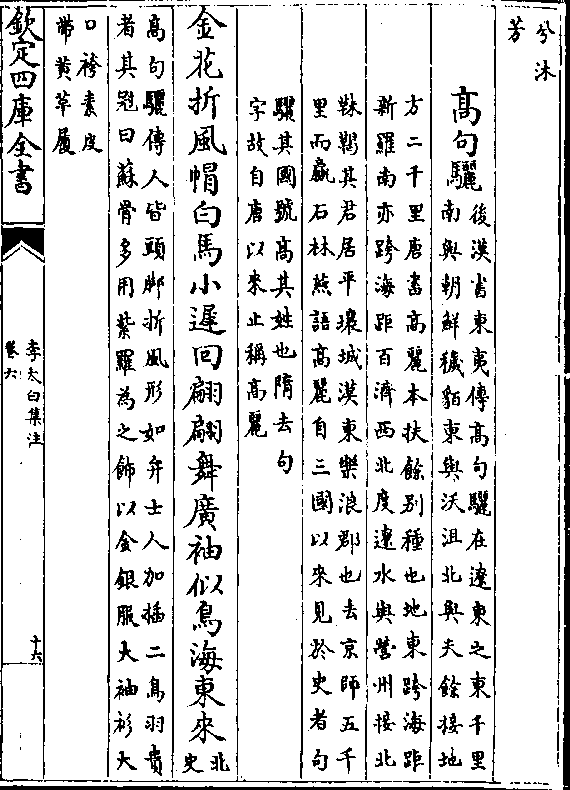 兮沐
芳
高句驪後漢書東夷傳高句驪在遼東之東千里
南與朝鮮穢貊東與沃沮北與夫餘接地
方二千里唐書高麗本扶餘别種也地東跨海距
新羅南亦跨海距百濟西北度遼水與營州接北
靺鞨其君居平壤城漢東樂浪郡也去京師五千
里而贏石林燕語高麗自三國以來見於史者句
驪其國號高其姓也隋去句
字故自唐以來止稱高麗
金花折風帽白馬小遲回翩翩舞廣袖似鳥海東來北
史
高句驪傳人皆頭著折風形如弁士人加插二鳥羽貴
者其冠曰蘇骨多用紫羅為之飾以金銀服大袖衫大
口袴素皮
帶黄革履
欽定四庫全書
李太白集注
卷六
十六